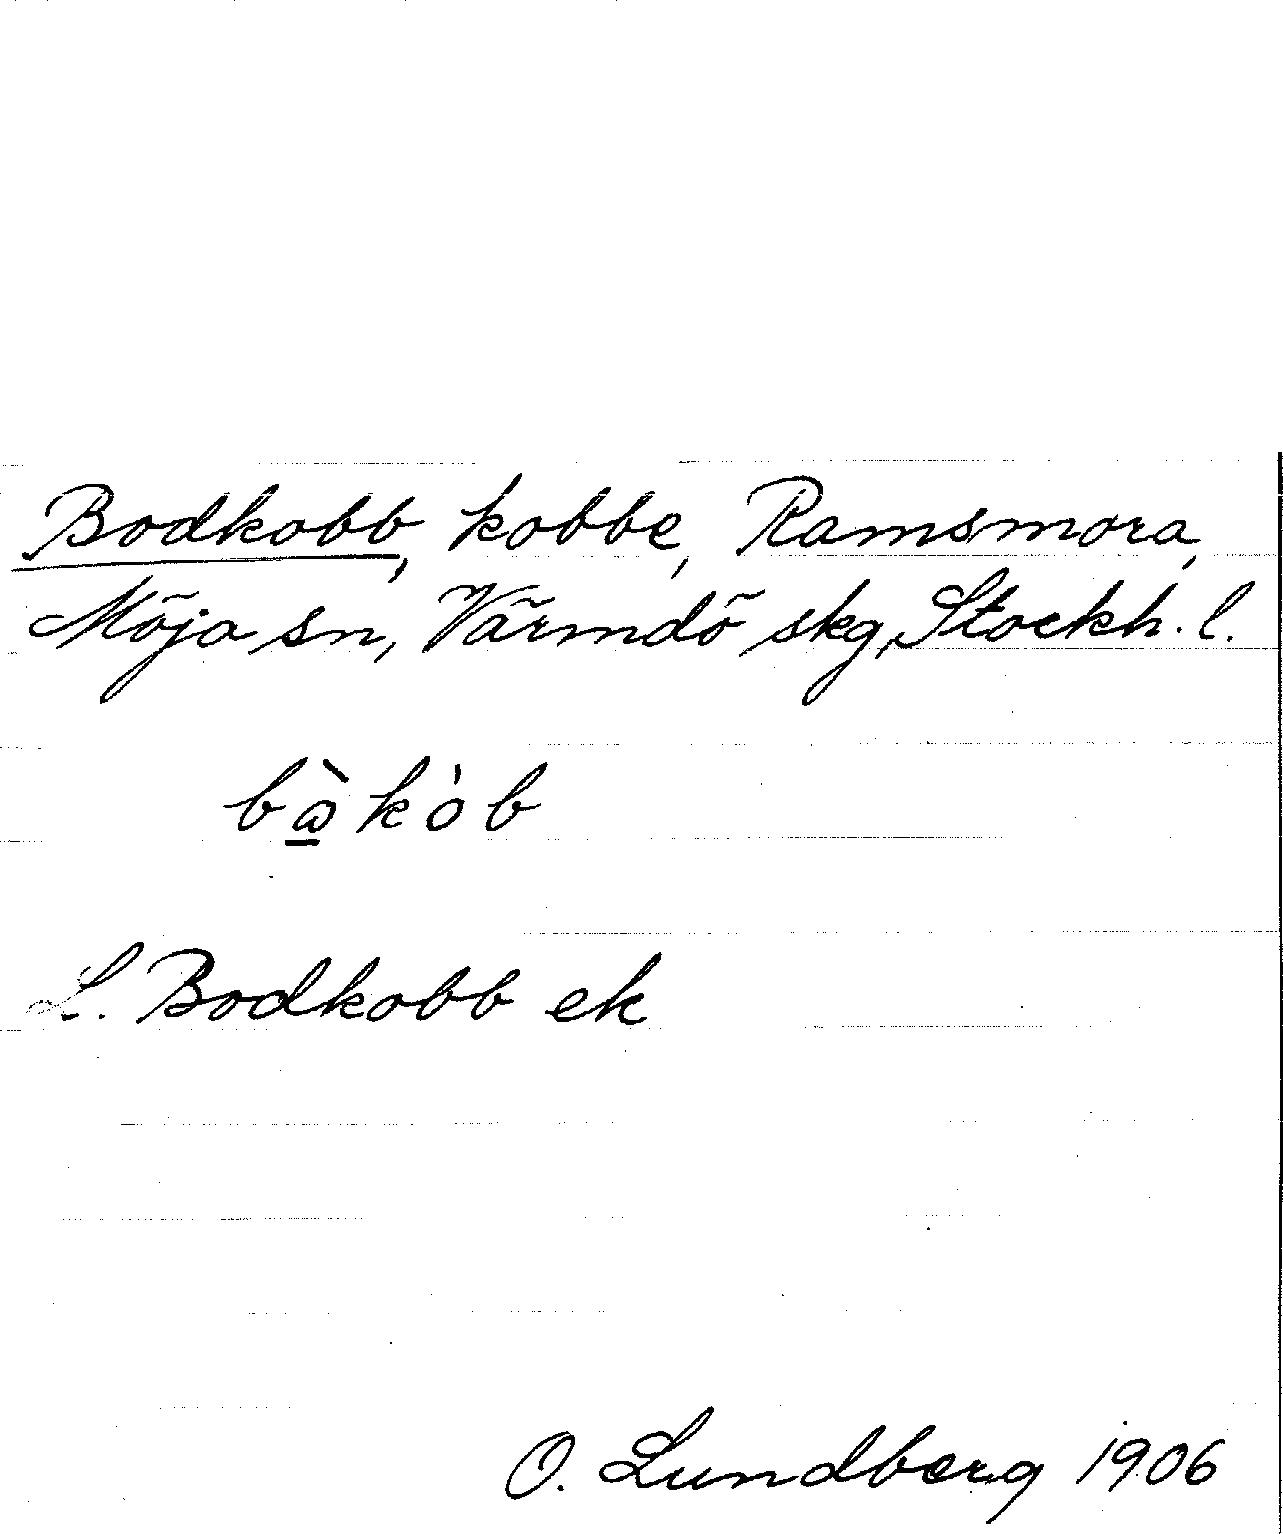 Bodkobb, kobbe, Ramsmora,
Möja sn, Värmdö skg, Stockh. l.
bὼ̲kòb
L. Bodkobb ek
O. Lundberg 1906